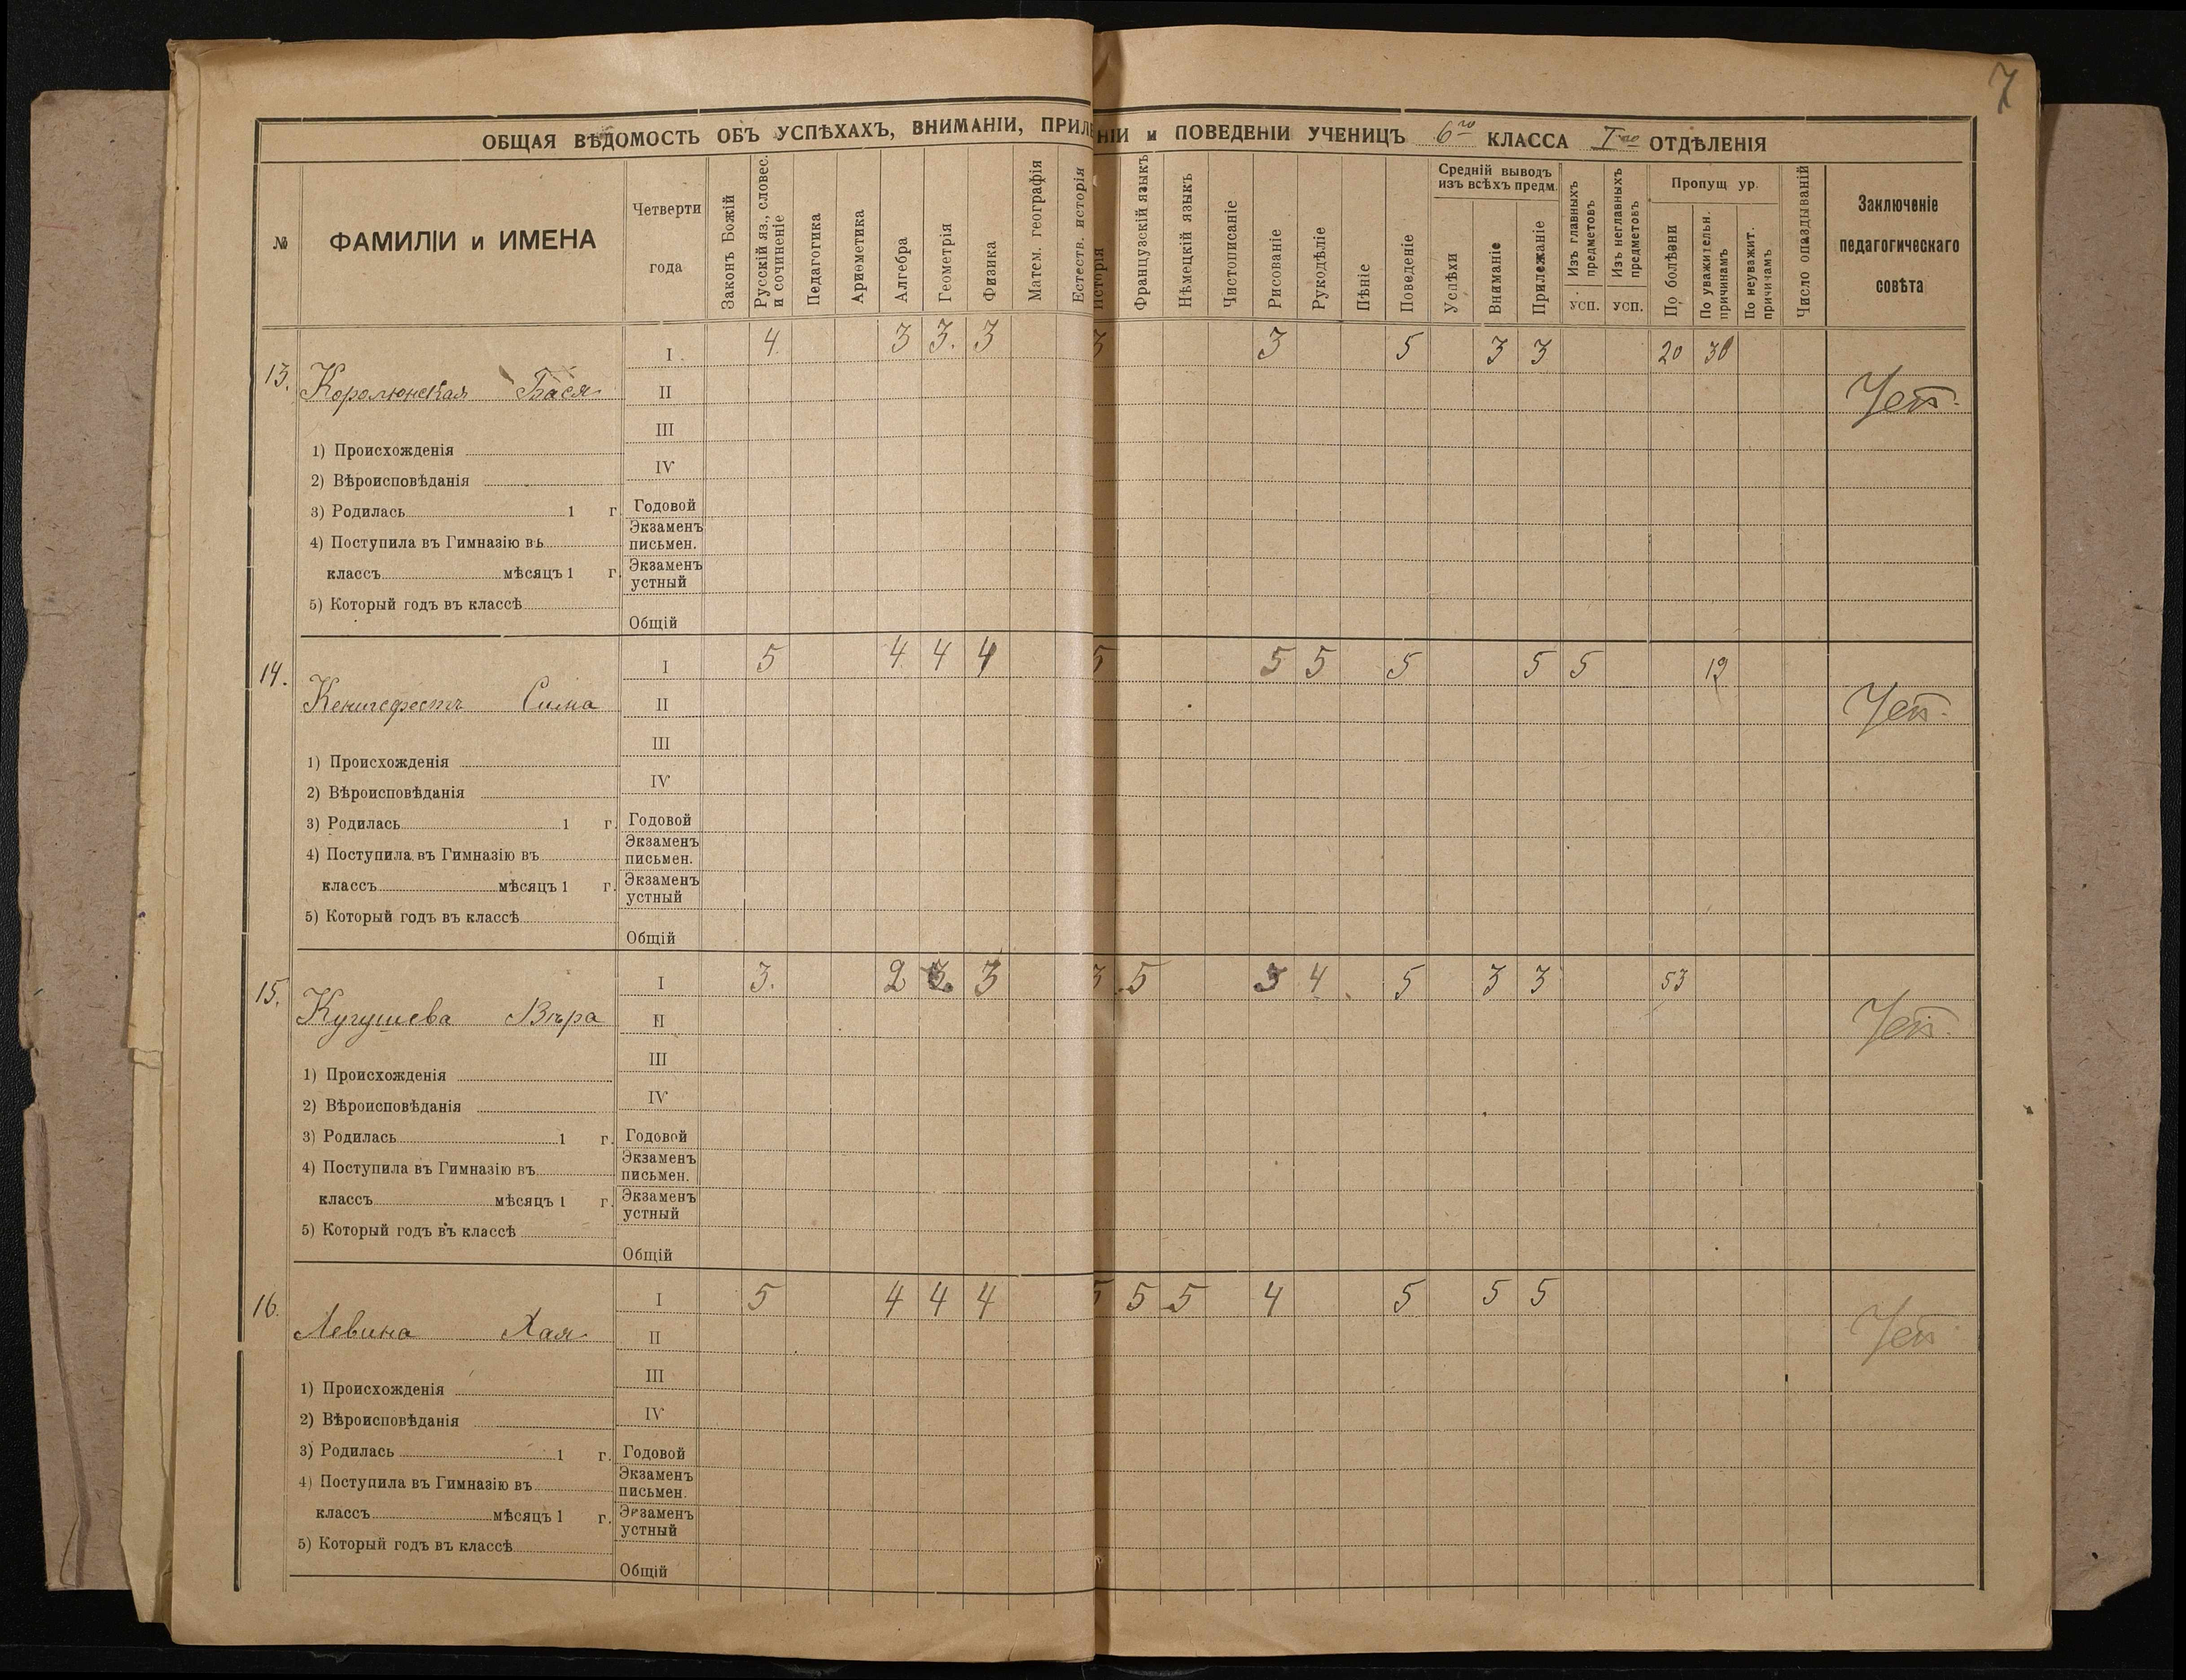 7
ОБЩАЯ ВѢДОМОСТЬ ОБЪ УСПѢХАХЪ, ВНИМАНІИ, ПРИЛЕ НІИ и ПОВЕДЕНІИ УЧЕНИЦЪ 6го КЛАССА Iго ОТДѢЛЕНІЯ
№ ФАМИЛІИ и ИМЕНА
Четверти года
Законъ Божій
Русскій яз., словес. и сочиненіе
Педагогика
Ариѳметика
Алгебра
Геометрія
Физика
Матем. географія
Естеств. исторія
Исторія
Французскій языкъ
Нѣмецкій языкъ
Чистописаніе
Рисованіе
Рукодѣліе
Пѣніе
Поведеніе
Средній выводъ изъ всѣхъ предм.
Успѣхи
Вниманіе
Прилежаніе
Изъ главныхъ предметовъ
усп.
Изъ неглавныхъ предметовъ
усп.
Пропущ ур.
По болѣзни
По уважительн. причинамъ
По неуважит. причинамъ
Число опаздываній
Заключеніе педагогическаго совѣта
13. I 4 3 3. 3 3 3 5 3 3 20 30
Королюнская Бася II
III
1) Происхожденія
IV
2) Вѣроисповѣданія
3) Родилась 1 г. Годовой
4) Поступила въ Гимназію въ Экзаменъ письмен.
классъ мѣсяцъ 1 г. Экзаменъ устный
5) Который годъ въ классѣ
Общій
14. I 5 4 4 4 5 5 5 5 5 5 12
Кенигсфестъ Сима II
III
1) Происхожденія
IV
2) Вѣроисповѣданія
3) Родилась 1 г. Годовой
4) Поступила въ Гимназію въ Экзаменъ письмен.
классъ мѣсяцъ 1 г. Экзаменъ устный
5) Который годъ въ классѣ
Общій
15. I 3. 2 3 3 5 3 4 5 3 3 53
Кугушева Вѣра II
III
1) Происхожденія
IV
2) Вѣроисповѣданія
3) Родилась 1 г. Годовой
4) Поступила въ Гимназію въ Экзаменъ письмен.
классъ мѣсяцъ 1 г. Экзаменъ устный
5) Который годъ въ классѣ
Общій
16. I 5 4 4 4 5 5 5 4 5 5 5
Левина Хая II
III
1) Происхожденія
IV
2) Вѣроисповѣданія
3) Родилась 1 г. Годовой
4) Поступила въ Гимназію въ Экзаменъ письмен.
классъ мѣсяцъ 1 г. Экзаменъ устный
5) Который годъ въ классѣ
Общій